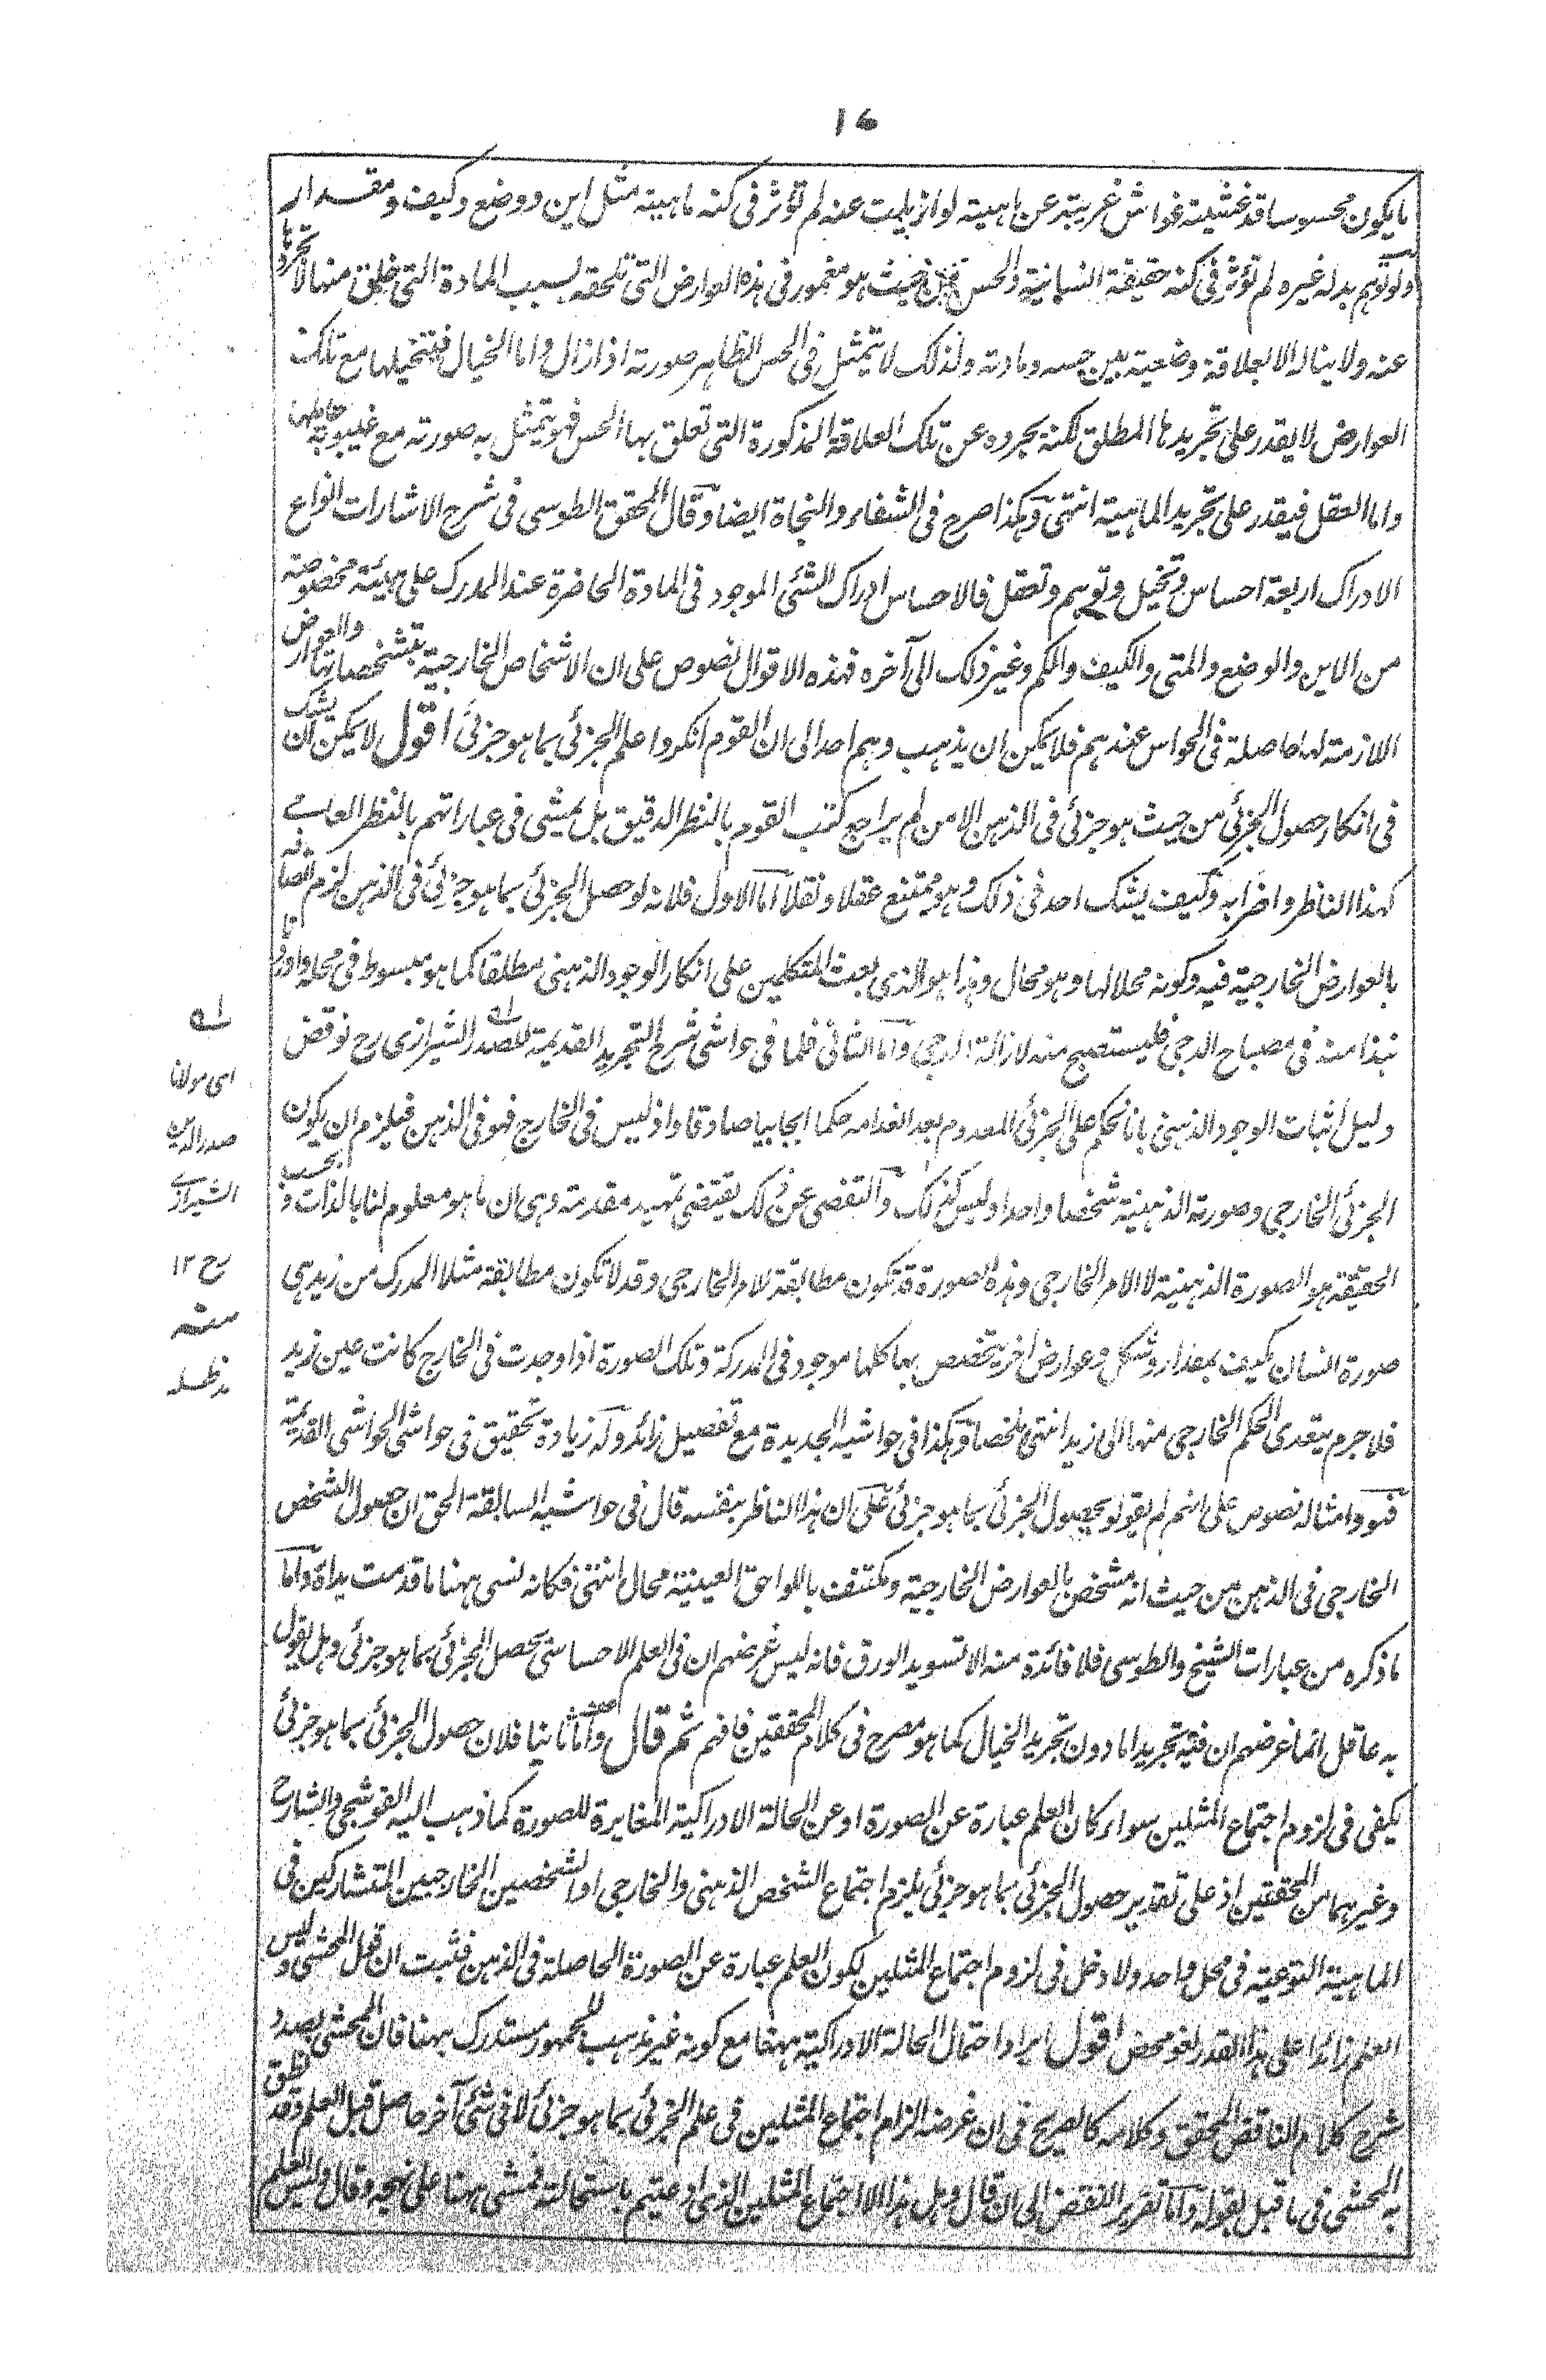 ١٦
ما يكون محسوسا قد غشيته غواش غريبة عن ماهيته لو ازيلت عنه لم تؤثر فى كنه ماهيته مثل اين ووضع وكيف ومقدار
ولو توهم بدله غيره لم تؤثر فى كنه حقيقة انسانية والحس حيث هو مغمور فى هذه العوارض التى تلحقه بسبب المادة التى خلق منها لا تجردها
عنه ولا يناله الا بعلاقة وضعية بين حسه ومادته ولذلك لا يتمثل فى الحس الظاهر صورته اذا زال واما الخيال فيتخيلها مع تلك
العوارض لا يقدر على تجريدها المطلق لكنه يجرده عن تلك العلاقة المذكورة التى تعلق بها الحس فهو يتمثل به صورته مع غيبوبة حاملها
واما العقل فيقدر على تجريد الماهية انتهى وهكذا صرح فى الشفاء والنجاة ايضا وقال المحقق الطوسى فى شرح الاشارات انواع
الادراك اربعة احساس وتخيل وتوهم وتعقل فالاحساس ادراك الشئ الموجود فى المادة الحاضرة عند المدرك على هيئة مخصوصة
من الاين والوضع والمتى والكيف والكم وغير ذلك الى آخره فهذه الاقوال نصوص على ان الاشخاص الخارجية بتشخصاتها والعوارض
اللازمة لها حاصلة فى الحواس عندهم فلا يمكن ان يذهب وهم احد الى ان القوم انكروا علم الجزئى بما هو جزئى اقول لا يمكن ان يشك
فى انكار حصول الجزئى من حيث هو جزئى فى الذهن الا من لم يراجع كتب القوم بالنظر الدقيق بل يمشى فى عباراتهم بالنظر العامى
كهذا الناظر واضرابه وكيف يشك احد فى ذلك وهو ممتنع عقلا ونقلا اما الاول فلانه لو حصل الجزئى بما هو جزئى فى الذهن لزم اتصافه
بالعوارض الخارجية فيه وكونه محلا لها وهو محال وهذا هو الذى بعث المتكلمين على انكار الوجود الذهنى مطلقا كما هو مبسوط فى محله واوردنا
نبذا منه فى مصباح الدجى فليستصبح منه لازالة الدجى واما الثانى فلما فى حواشى شرح التجريد القديمة للصدر الشيرازى رح نوقض
دليل اثبات الوجود الذهنى بانا نحكم على الجزئى المعدوم بعد انعدامه حكما ايجابيا صادقا واذ ليس فى الخارج فهو فى الذهن فيلزم ان يكون
الجزئى الخارجى وصورته الذهنية شخصا واحدا وليس كذلك والتفصى عن ذلك يقتضى تمهيد مقدمة وهى ان ما هو معلوم لنا بالذات وبحسب
الحقيقة هو الصورة الذهنية لا الامر الخارجى وهذه الصورة قد تكون مطابقة للامر الخارجى وقد لا تكون مطابقة مثلا المدرك من زيد هى
صورة انسان مكيف بمقدار وشكل وعوارض اخر يتخصص بها كلها موجود فى المدركة وتلك الصورة اذا وجدت فى الخارج كانت عين زيد
فلا جرم يتعدى الحكم الخارجى منها الى زيد انتهى ملخصا وهكذا فى حواشيه الجديدة مع تفصيل زائد وله زيادة تحقيق فى حواشى الحواشى القديمة
فهو وامثاله نصوص على انهم لم يقولو بحصول الجزئى بما هو جزئى على ان هذا الناظر بنفسه قال فى حواشيه السابقة الحق ان حصول الشخص
الخارجى فى الذهن من حيث انه مشخص بالعوارض الخارجية ومكتنف باللواحق العينية محال انتهى فكانه نسى ههنا ما قدمت يداه واما
ما ذكره من عبارات الشيخ والطوسى فلا فائدة منه الا تسويد الورق فانه ليس غرضهم ان فى العلم الاحساسى يحصل الجزئى بما هو جزئى وهل يقول
به عاقل انما غرضهم ان فيه تجريدا ما دون تجريد الخيال كما هو مصرح فى كلام المحققين فافهم ثم قال واما ثانيا فلان حصول الجزئى بما هو جزئى
يكفى فى لزوم اجتماع المثلين سواء كان العلم عبارة عن الصورة او عن الحالة الادراكية المغايرة للصورة كما ذهب اليه القوشجى والشارح
وغيرهما من المحققين اذ على تقدير حصول الجزئى بما هو جزئى يلزم اجتماع الشخص الذهنى والخارجى او الشخصين الخارجيين المتشاركين فى
الماهية النوعية فى محل واحد ولا دخل فى لزوم اجتماع المثلين لكون العلم عبارة عن الصورة الحاصلة فى الذهن فثبت ان قول المحشى وليس
العلم زائدا على هذا القدر لغو محض اقول ايراد احتمال الحالة الادراكية ههنا مع كونه غير مذهب للجمهور مستدرك ههنا فان المحشى بصدد
شرح كلام الناقض المحقق وكلامه كالصريح فى ان غرضه الزام اجتماع المثلين فى علم الجزئى بما هو جزئى لا فى شئ آخر حاصل قبل العلم وقد نطق
به المحشى فى ما قبل بقوله واما تقرير النقض الى ان قال وهل هذا الا اجتماع المثلين الذى ادعيتم باستحالته فمشى ههنا على نهجه وقال وليس العلم
له
اى مولانا
صدر الدين
الشيرازى
رح ١٢
منه
مد ظله